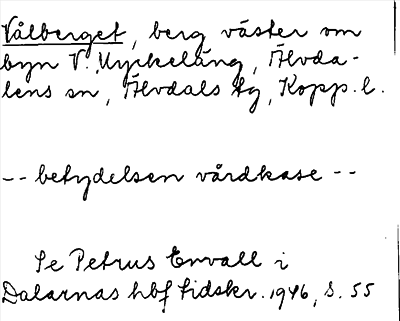 Vålberget, berg väster om
byn V. Myckeläng, Älvda-
lens sn, Älvdals tg, Kopp. l.
-- betydelsen vårdkase --
Se Petrus Envall i
Dalarnas hbf tidskr. 1946, s. 55